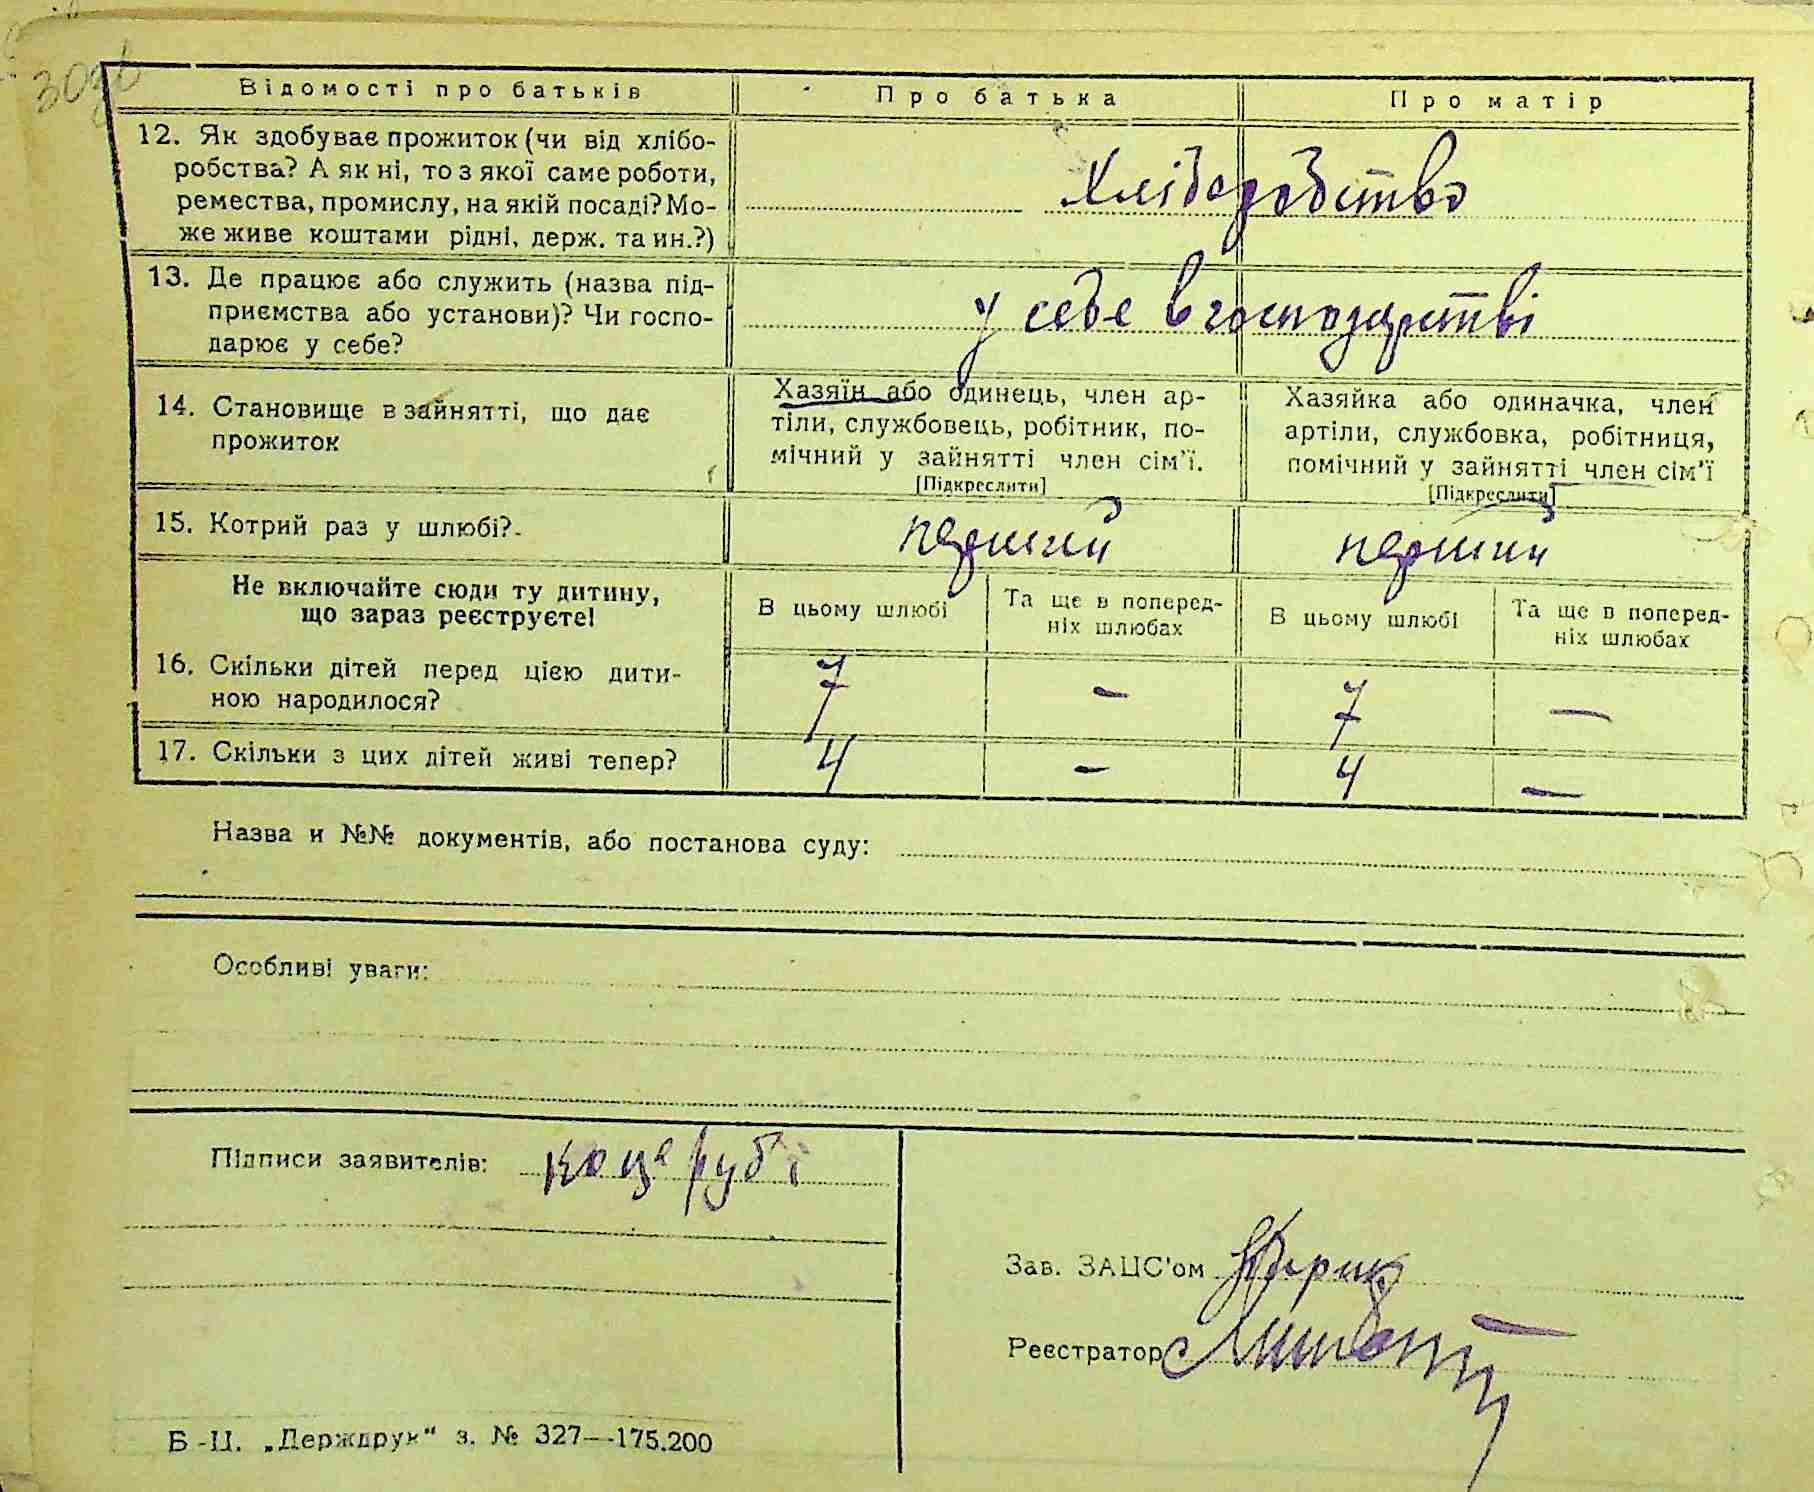 30зв
Відомості про батьків Про батька Про матір
12. Як здобуває прожиток (чи від хлібо-
робства? А як ні, то з якої саме роботи,
ремества, промислу, на якій посаді? Мо-
же живе коштами рідні, держ. та ин.?)
Хліборобство
13. Де працює або служить (назва під-
приємства або установи)? Чи госпо-
дарює у себе?
у себе в господарстві
14. Становище в зайнятті, що дає
прожиток
Хазяїн або одинець, член ар-
тіли, службовець, робітник, по-
мічний у зайнятті член сім'ї.
[Підкреслити]
Хазяйка або одиначка, член
артіли, службовка, робітниця,
помічний у зайнятті член сім'ї
[Підкреслити]
15. Котрий раз у шлюбі?
перший перший
Не включайте сюди ту дитину,
що зараз реєструєте!
В цьому шлюбі
Та ще в поперед-
ніх шлюбах
В цьому шлюбі
Та ще в поперед-
ніх шлюбах
16. Скільки дітей перед цією дити-
ною народилося?
7 – 7 –
17. Скільки з цих дітей живі тепер? 4 – 4 –
Назва и №№ документів, або постанова суду:
Особливі уваги:
Підписи заявителів: Коцеруба
Зав. ЗАЦС'ом
Реєстратор
Б-Ц. „Держдрук“ з. № 327—175.200